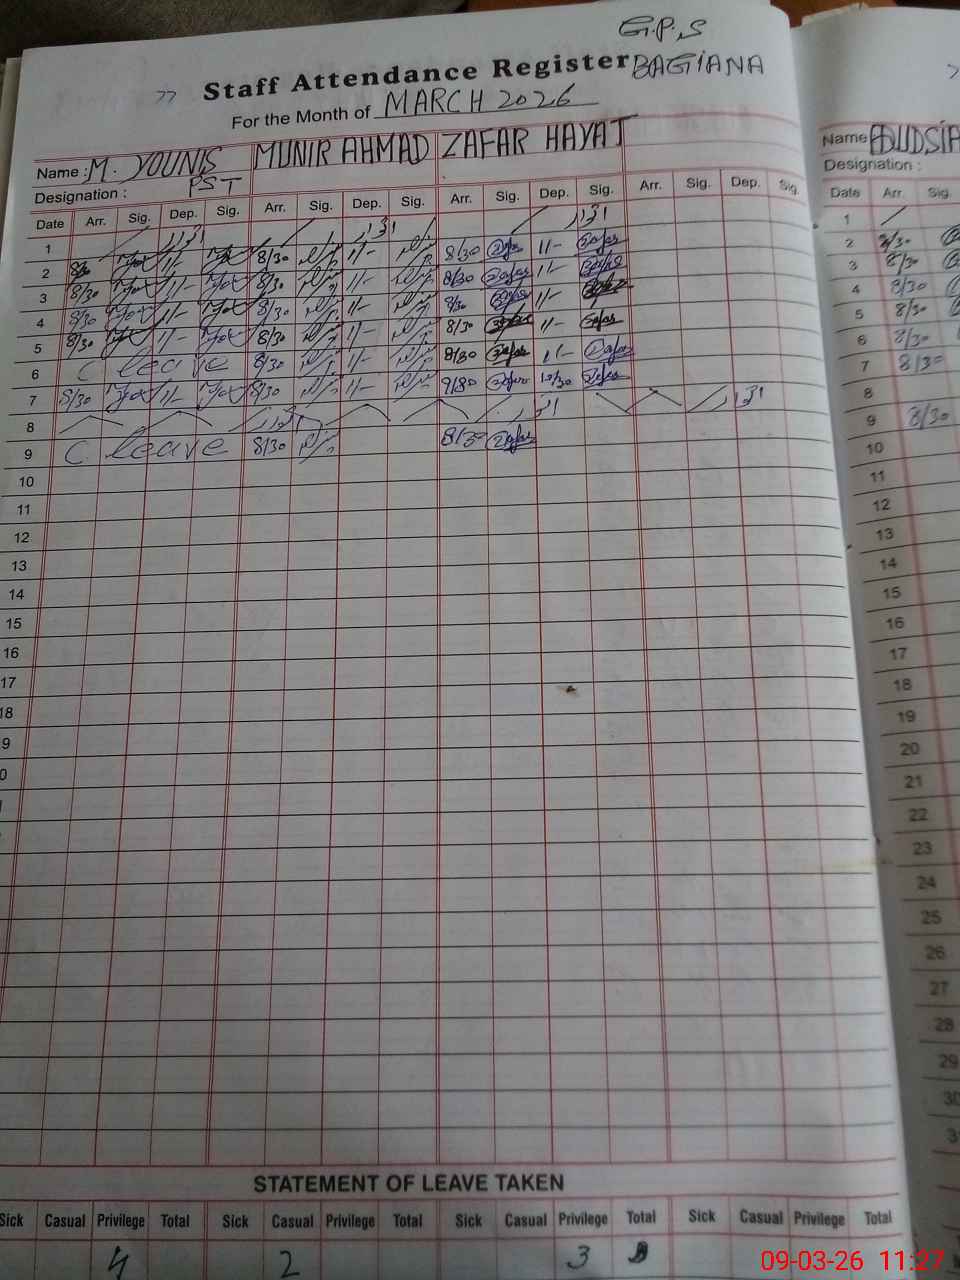 G.P.S
Staff Attendance Register BAGIANA
For the Month of MARCH 2026
Name : M. YOUNIS MUNIR AHMAD ZAFAR HAYAT
Designation : PST
Date Arr. Sig. Dep. Sig. Arr. Sig. Dep. Sig. Arr. Sig. Dep. Sig. Arr. Sig. Dep. Sig.
1 اتوار اتوار اتوار
2 8/30 11/- 8/30 11/- 8/30 Zafar 11/- Zafar
3 8/30 11/- 8/30 11/- 8/30 Zafar 11/- Zafar
4 8/30 11/- 8/30 11/- 8/30 Zafar 11/- Zafar
5 8/30 11/- 8/30 11/- 8/30 Zafar 11/- Zafar
6 C leave 8/30 11/- 8/30 Zafar 11/- Zafar
7 8/30 11/- 8/30 11/- Zafar 10/30 Zafar
8 اتوار اتوار اتوار
9 C leave 8/30 Zafar
10
11
12
13
14
15
16
17
18
9
0
STATEMENT OF LEAVE TAKEN
Sick Casual Privilege Total Sick Casual Privilege Total Sick Casual Privilege Total Sick Casual Privilege Total
4 2 3
Name
Designation :
Date Arr. Sig.
1
2 8/30
3 8/30
4 8/30
5 8/30
6 8/30
7 8/30
8
9 8/30
10
11
12
13
14
15
16
17
18
19
20
21
22
23
24
25
26
27
28
29
30
3
09-03-26 11:27